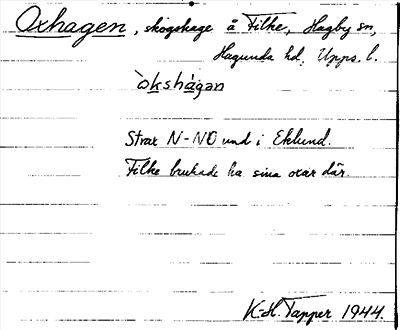 Oxhagen, skogshage å Filke, Hagby sn,
Hagunda hd, Upps. l.
òkshágan
Strax N-NO und i Eklund.
Filke brukade ha sina oxar där.
K-H. Tapper 1944.